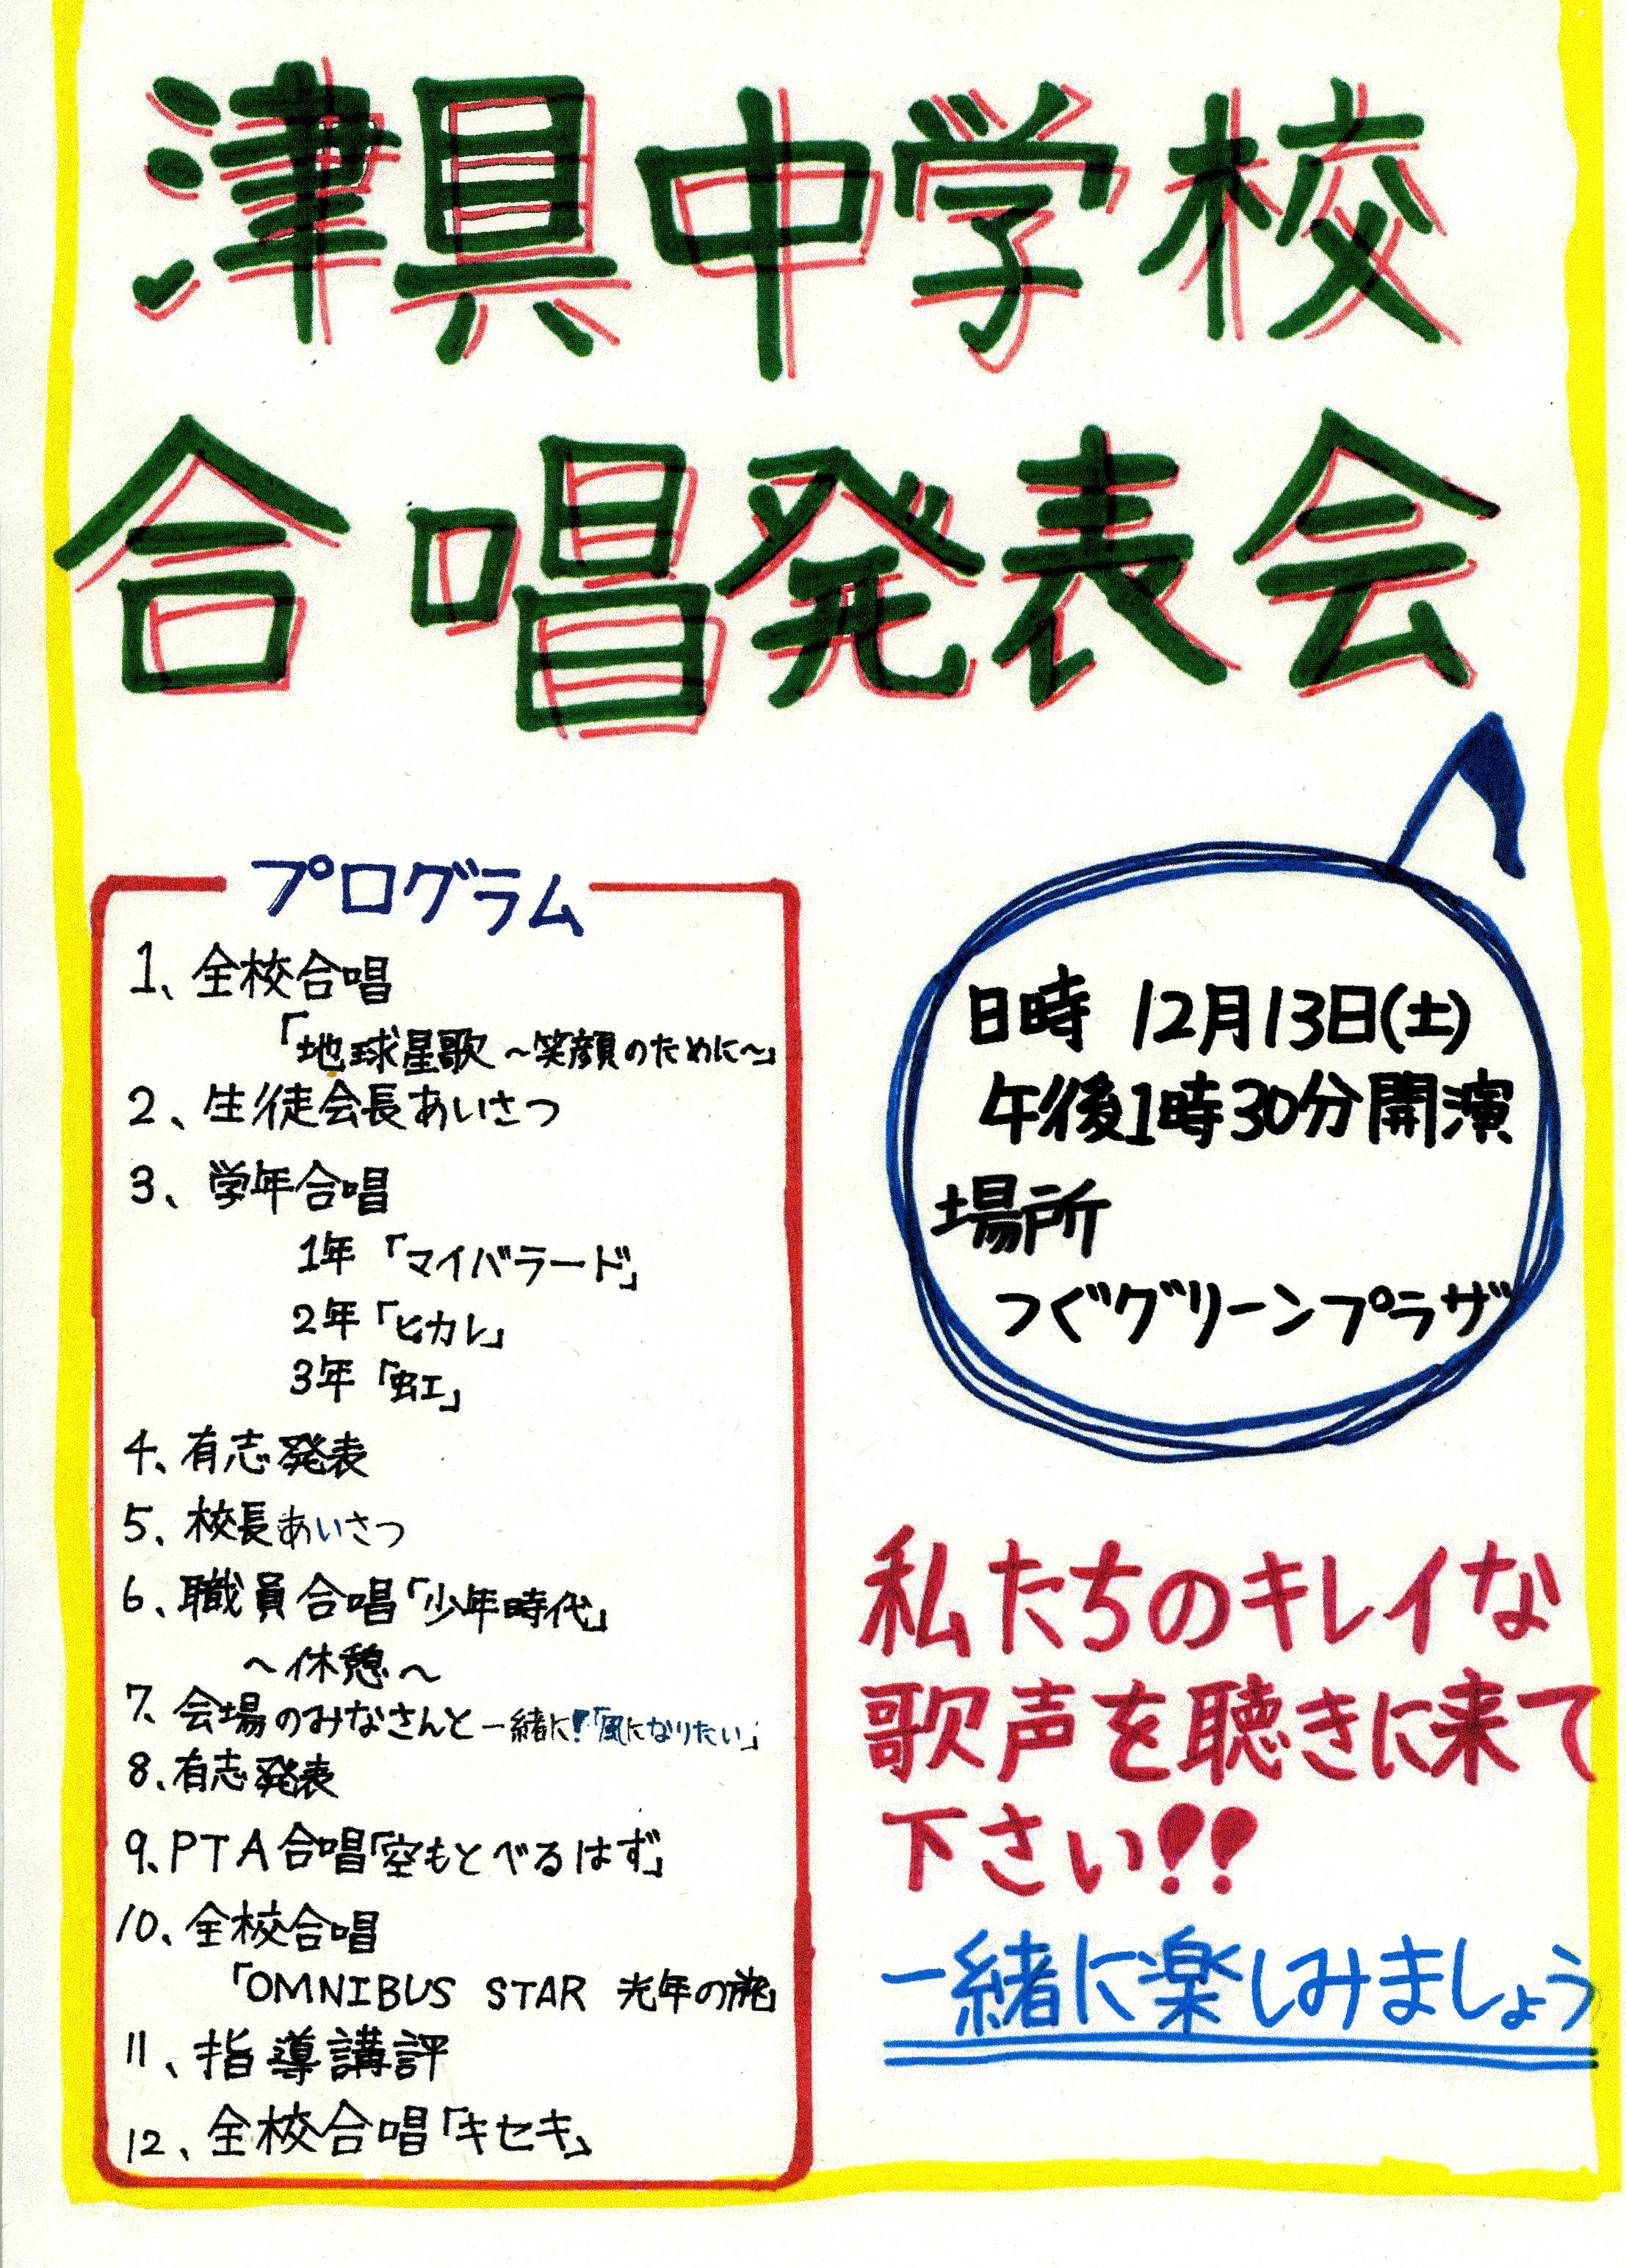 津具中学校
合唱発表会
プログラム
1、全校合唱
「地球星歌〜笑顔のために〜」
2、生徒会長あいさつ
3、学年合唱
1年「マイバラード」
2年「ヒカレ」
3年「虹」
4、有志発表
5、校長あいさつ
6、職員合唱「少年時代」
〜休憩〜
7、会場のみなさんと一緒に!「風になりたい」
8、有志発表
9、PTA合唱「空もとべるはず」
10、全校合唱
「OMNIBUS STAR 光年の旅」
11、指導講評
12、全校合唱「キセキ」
日時 12月13日(土)
午後1時30分開演
場所
つぐグリーンプラザ
私たちのキレイな
歌声を聴きに来て
下さい!!
一緒に楽しみましょう